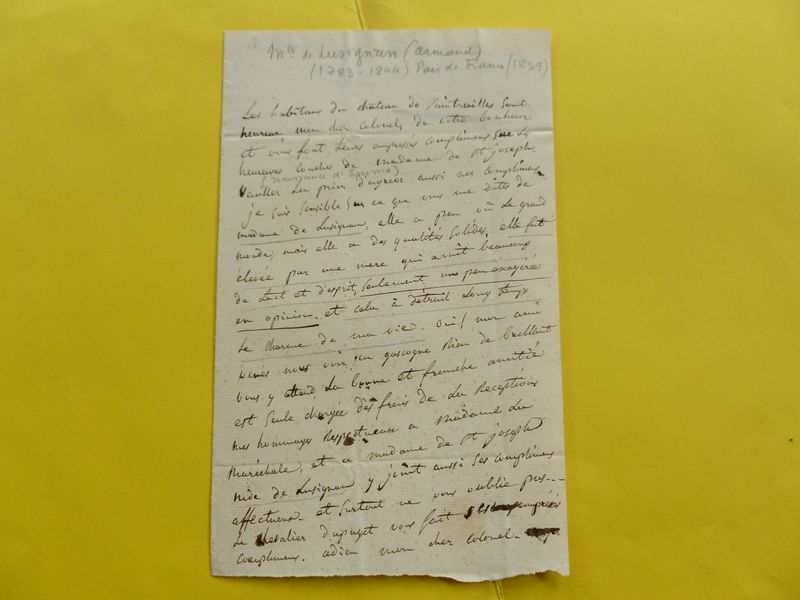 Mis de Lusignan (armand)
(1783 - 1844) Pair de France (1839)
Les habitans du chateau de Xaintrailles sont
heureux mon cher colonel, de votre bonheur
et vous font leurs empressés complimens sur les
heureuses couches de madame de St joseph,
(naissance d'
veuillez la prier d'agréer aussi nos complimens.
je suis sensible sur ce que vous me dites de
madame de Lusignan, elle a peu vû le grand
monde, mais elle a des qualités solides, elle fut
élevée par une mere qui avoit beaucoup
de tact et d'esprit, seulement un peu exagérée
en opinion, et cela à détruit long temps
le charme de ma vie. oui! mon ami
venés nous voir, en gascogne rien de brillant
vous y attend, la bonne et franche amitié
est seule chargée des frais de la Reception
mes hommages Respectueux a Madame La
Maréchale, et a madame de St joseph
mde de Lusignan y joint aussi ses complimens
affectueux - et surtout ne vous oublie pas - -
Le chevalier dupuget vous fait ses empréssés
complimens. adieu mon cher colonel -